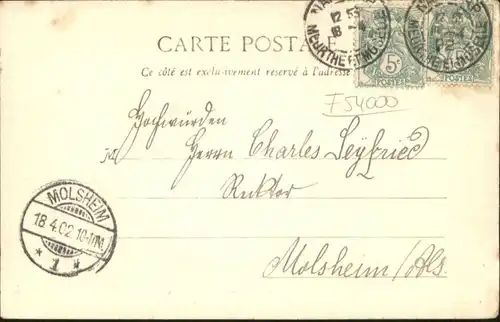 12 55
18
MEURTHE ET MOSELLE
CARTE POSTALE
Ce côté est exclusivement réservé à l'adresse
5c
POSTES
F54000
Hochwürden
Herrn Charles Seyfried
Rektor
MOLSHEIM
18 4.02 10-11V.
* 1 *
Molsheim/Els.